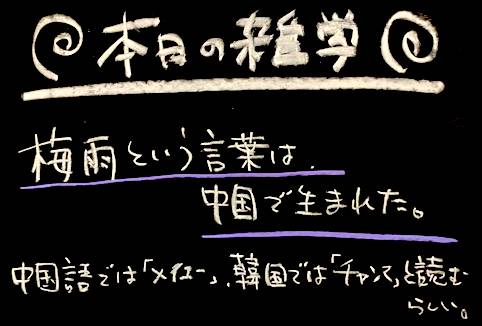 本日の雑学
梅雨という言葉は、
中国で生まれた。
中国語では「メイユー」、韓国では「チャンマ」と読む
らしい。